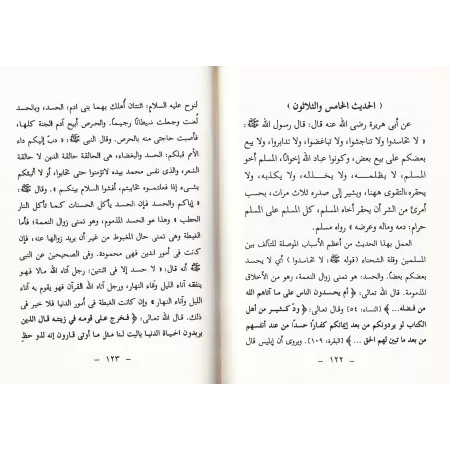 ﴿ الحديث الخامس والثلاثون ﴾
عن أبى هريرة رضى الله عنه قال: قال رسول الله ﷺ:
« لا تحاسدوا ولا تناجشوا، ولا تباغضوا، ولا تدابروا، ولا يبع
بعضكم على بيع بعض، وكونوا عباد الله إخوانًا، المسلم أخو
المسلم، لا يظلمـــه، ولا يخـــذلـه، ولا يكـذبه، ولا
يحقره.التقوى ههنا، ويشير إلى صدره ثلاث مرات، بحسب
أمرئ من الشر أن يحقر أخاه المسلم، كل المسلم على المسلم
حرام: دمه وماله وعرضه » رواه مسلم.
العمل بهذا الحديث من أعظم الأسباب الموصلة للتآلف بين
المسلمين وقلة الشحناء (قوله ﷺ: لا تحاسدوا) أي لا يحسد
بعضكم بعضًا. والحسد: هو تمنى زوال النعمة، وهو من الأخلاق
المذمومة. قال الله تعالى: ﴿ أم يحسدون الناس على ما آتاهم الله
من فضله... ﴾ [النساء: ٥٤] وقال تعالى: ﴿ ودّ كثير من أهل
الكتاب لو يردونكم من بعد إيمانكم كفارًا حسدًا من عند أنفسهم
من بعد ما تبين لهم الحق ... ﴾ [البقرة: ١٠٩]. ويروى أن إبليس قال
- ١٢٢ -
لنوح عليه السلام: اثنتان أهلك بهما بنى آدم: الحسد، وبالحسد
لعنت وجعلت شيطانًا رجيمًا. والحرص أبيح آدم الجنة كلها،
فأصبت حاجتى منه بالحرص. وقال النبى ﷺ: « دبّ إليكم داء
الأمم قبلكم: الحسد والبغضاء، هى الحالقة حالقة الدين لا حالقة
الشعر، والذى نفس محمد بيده لاتؤمنوا حتى تحابوا، أو لا أنبئكم
بشىء إذا فعلتموه تحاببتم، أفشوا السلام بينكم ». وقال ﷺ:
« إياكم والحسد فإن الحسد يأكل الحسنات كما تأكل النار
الحطب » وهذا هو الحسد المذموم، وهو تمنى زوال النعمة؛ فأما
الغبطة وهى تمنى حال المغبوط من غير أن يريد زوالها عنه، فإن
كانت فى أمور الدين فهى محمودة. وفى الصحيحين عن النبى
ﷺ أنه قال: « لا حسد إلا فى اثنتين: رجل آتاه الله مالًا فهو
ينفقه آناء الليل وآناء النهار، ورجل آتاه الله القرآن فهو يقوم به آناء
الليل وآناء النهار» وإن كانت الغبطة فى أمور الدنيا فلا خير فى
ذلك. قال الله تعالى: ﴿ فخرج على قومه فى زينته قال الذين
يريدون الحياة الدنيا ياليت لنا مثل ما أوتى قارون إنه لذو حظ
- ١٢٣ -